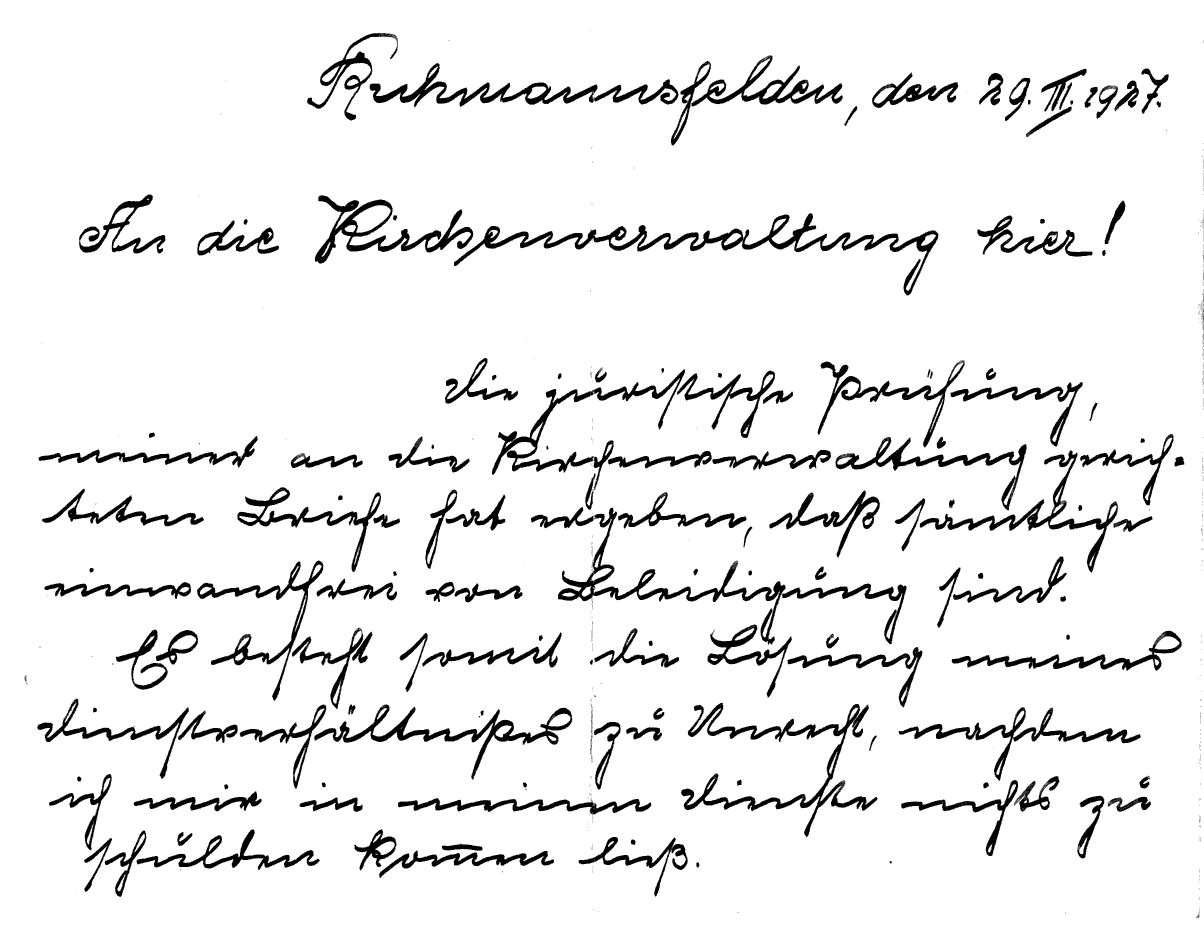 Ruhmannsfelden, den 29. III. 1927.
An die Kirchenverwaltung hier!
Die juristische Prüfung,
meiner an die Kirchenverwaltung gerich-
teten Briefe hat ergeben, daß sämtliche
einwandfrei von Beleidigung sind.
Es besteht somit die Lösung meines
Dienstverhältnißes zu Unrecht, nachdem
ich mir in meinem Dienste nichts zu
schulden kom̅en ließ.